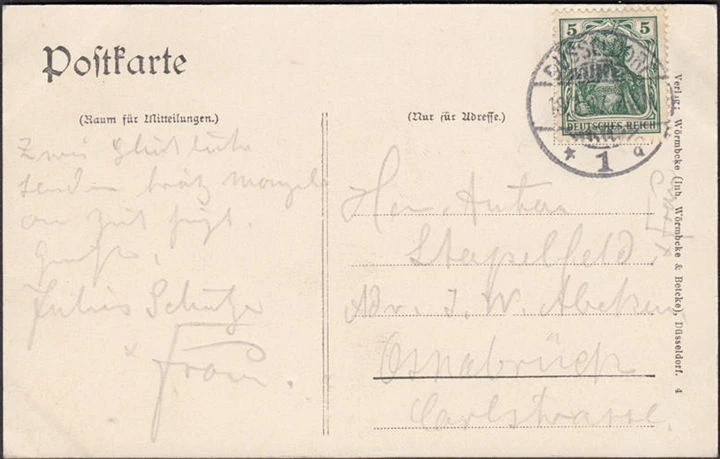 Postkarte
(Raum für Mitteilungen.)
Zwei Glückliche
senden trotz Mangel
an Zeit

Julius Schulze
× Frau.
(Nur für Adresse.)
5 5
DÜSSELDORF
DEUTSCHES REICH
* 1 a
Herr Anton
Stapelfeld.
Adr. J. W. Abeken
Osnabrück
Carlstrasse.
Verlag: Wörmbcke (Inh. Wörmbcke & Betcke), Düsseldorf. 4